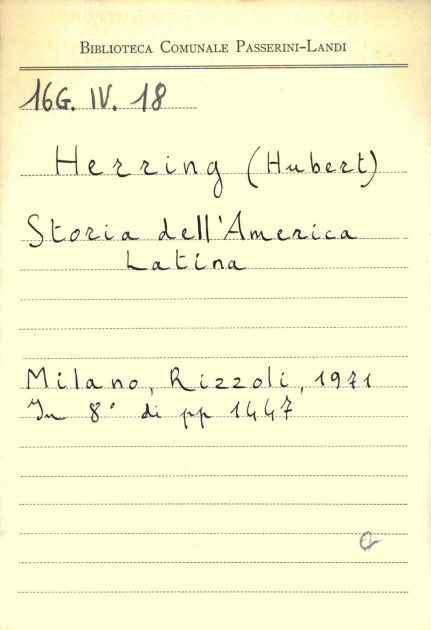 BIBLIOTECA COMUNALE PASSERINI-LANDI
16G. IV. 18
Herring (Hubert)
Storia dell'America
Latina
Milano, Rizzoli, 1971
In 8° di pp 1447